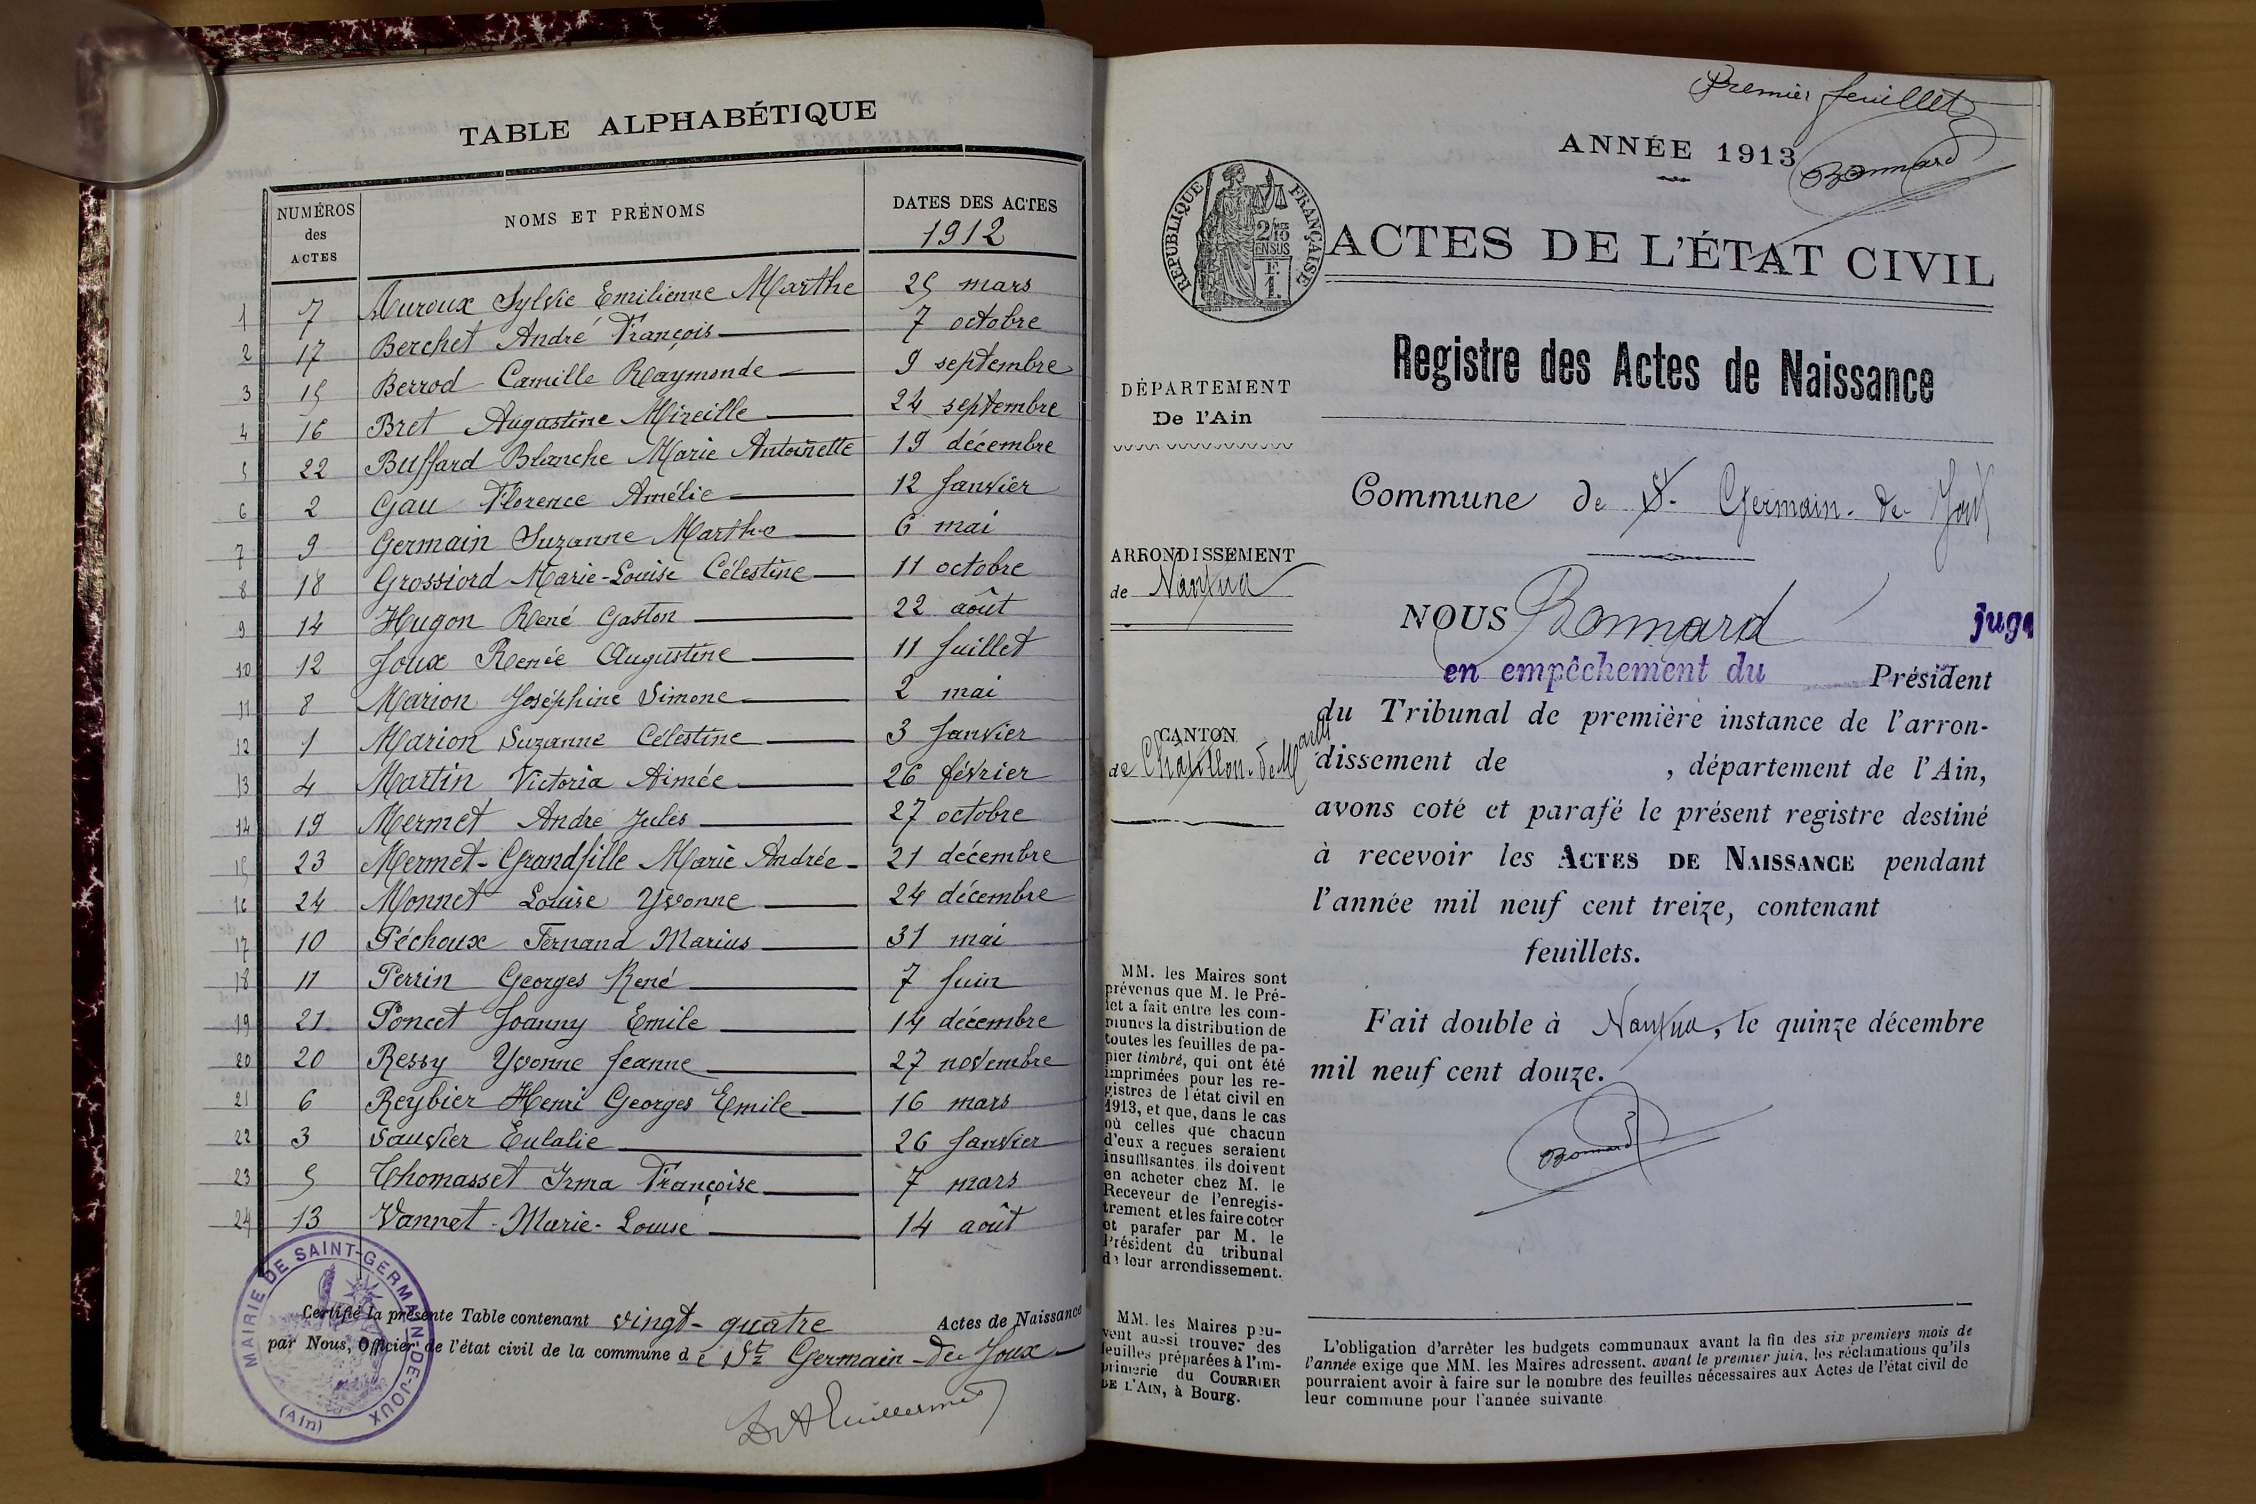 TABLE ALPHABÉTIQUE
NUMÉROS des ACTES NOMS ET PRÉNOMS DATES DES ACTES
1912
1 7 Auroux Sylvie Emilienne Marthe 25 mars
2 17 Berchet André François 7 octobre
3 15 Berrod Camille Raymonde 9 septembre
4 16 Bret Augustine Mireille 24 septembre
5 22 Buffard Blanche Marie Antoinette 19 décembre
6 2 Gau Florence Amélie 12 Janvier
7 9 Germain Suzanne Marthe 6 mai
8 18 Grossiord Marie-Louise Célestine 11 octobre
9 14 Hugon René Gaston 22 août
10 12 Joux Renée Augustine 11 Juillet
11 8 Marion Joséphine Simone 2 mai
12 1 Marion Suzanne Célestine 3 Janvier
13 4 Martin Victoria Aimée 26 février
14 19 Mermet André Jules 27 octobre
15 23 Mermet-Grandfille Marie Andrée 21 décembre
16 24 Monnet Louise Yvonne 24 décembre
17 10 Péchoux Fernand Marius 31 mai
18 11 Perrin Georges René 7 Juin
19 21 Poncet Joanny Emile 14 décembre
20 20 Ressy Yvonne Jeanne 27 novembre
21 6 Reybier Henri Georges Emile 16 mars
22 3 Sauvier Eulalie 26 Janvier
23 5 Thomasset Irma Françoise 7 mars
24 13 Vannet Marie-Louise 14 août
Certifié la présente Table contenant vingt-quatre Actes de Naissance
par Nous, Officier de l'état civil de la commune de St Germain-de-Joux
MAIRIE DE SAINT-GERMAIN-DE-JOUX
(Ain)
Dr A Guillermet
Premier feuillet
Bonnard
ANNÉE 1913
RÉPUBLIQUE FRANÇAISE
2/10 EN SUS
F.
1.
ACTES DE L'ÉTAT CIVIL
Registre des Actes de Naissance
DÉPARTEMENT
De l'Ain
Commune de St-Germain-de-Joux
ARRONDISSEMENT
de Nantua
CANTON
de Châtillon-de-M
NOUS Bonnard juge
en empêchement du Président
du Tribunal de première instance de l'arron-
dissement de , département de l'Ain,
avons coté et parafé le présent registre destiné
à recevoir les ACTES DE NAISSANCE pendant
l'année mil neuf cent treize, contenant
feuillets.
Fait double à Nantua, le quinze décembre
mil neuf cent douze.
Bonnard
MM. les Maires sont
prévenus que M. le Pré-
fet a fait entre les com-
munes la distribution de
toutes les feuilles de pa-
pier timbré, qui ont été
imprimées pour les re-
gistres de l'état civil en
1913, et que, dans le cas
où celles que chacun
d'eux a reçues seraient
insuffisantes, ils doivent
en acheter chez M. le
Receveur de l'enregis-
trement et les faire coter
et parafer par M. le
Président du tribunal
de leur arrondissement.
MM. les Maires peu-
vent aussi trouver des
feuilles préparées à l'im-
primerie du COURRIER
DE L'AIN, à Bourg.
L'obligation d'arrêter les budgets communaux avant la fin des six premiers mois de
l'année exige que MM. les Maires adressent, avant le premier juin, les réclamations qu'ils
pourraient avoir à faire sur le nombre des feuilles nécessaires aux Actes de l'état civil de
leur commune pour l'année suivante